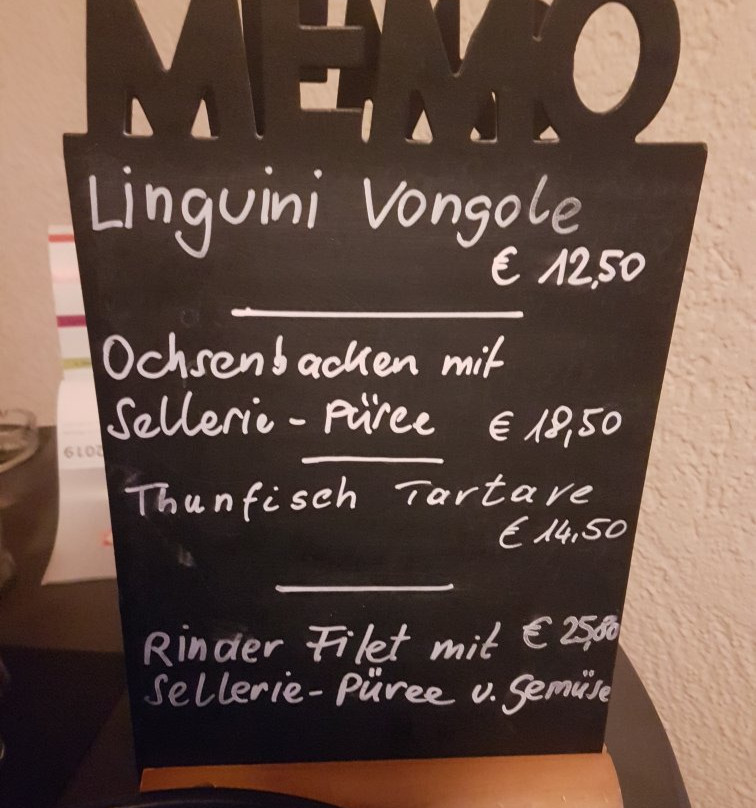 MEMO
Linguini Vongole
€ 12,50
Ochsenbacken mit
Sellerie-Püree € 18,50
Thunfisch Tartare
€ 14,50
Rinder Filet mit €
Sellerie-Püree u. Gemüse
2019